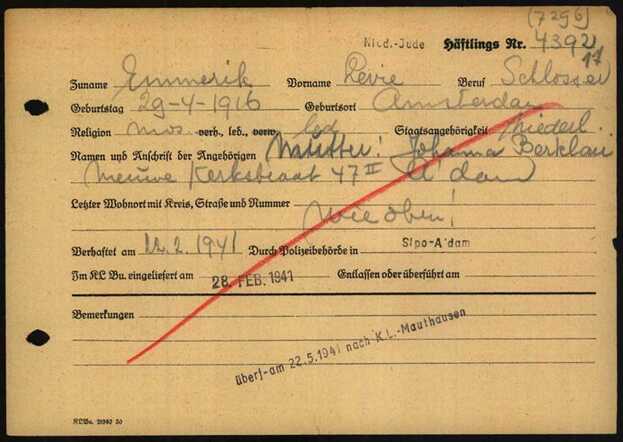 (7296)
Nied.-Jude Häftlings Nr. 4392
17
Zuname Emmerik Vorname Levie Beruf Schlosser
Geburtstag 29-4-1916 Geburtsort Amsterdam
Religion mos. verh., led., verw. led Staatsangehörigkeit Niederl.
Namen und Anschrift der Angehörigen Mutter! Johanna Berklau
Nieuwe Kerkstraat 47 II A'dam
Letzter Wohnort mit Kreis, Straße und Nummer
wie oben!
Verhaftet am 22.2.1941 Durch Polizeibehörde in Sipo-A'dam
Im KL Bu. eingeliefert am 28. FEB. 1941 Entlassen oder überführt am
Bemerkungen
überf. am 22.5.1941 nach K.L.-Mauthausen
KLBu.